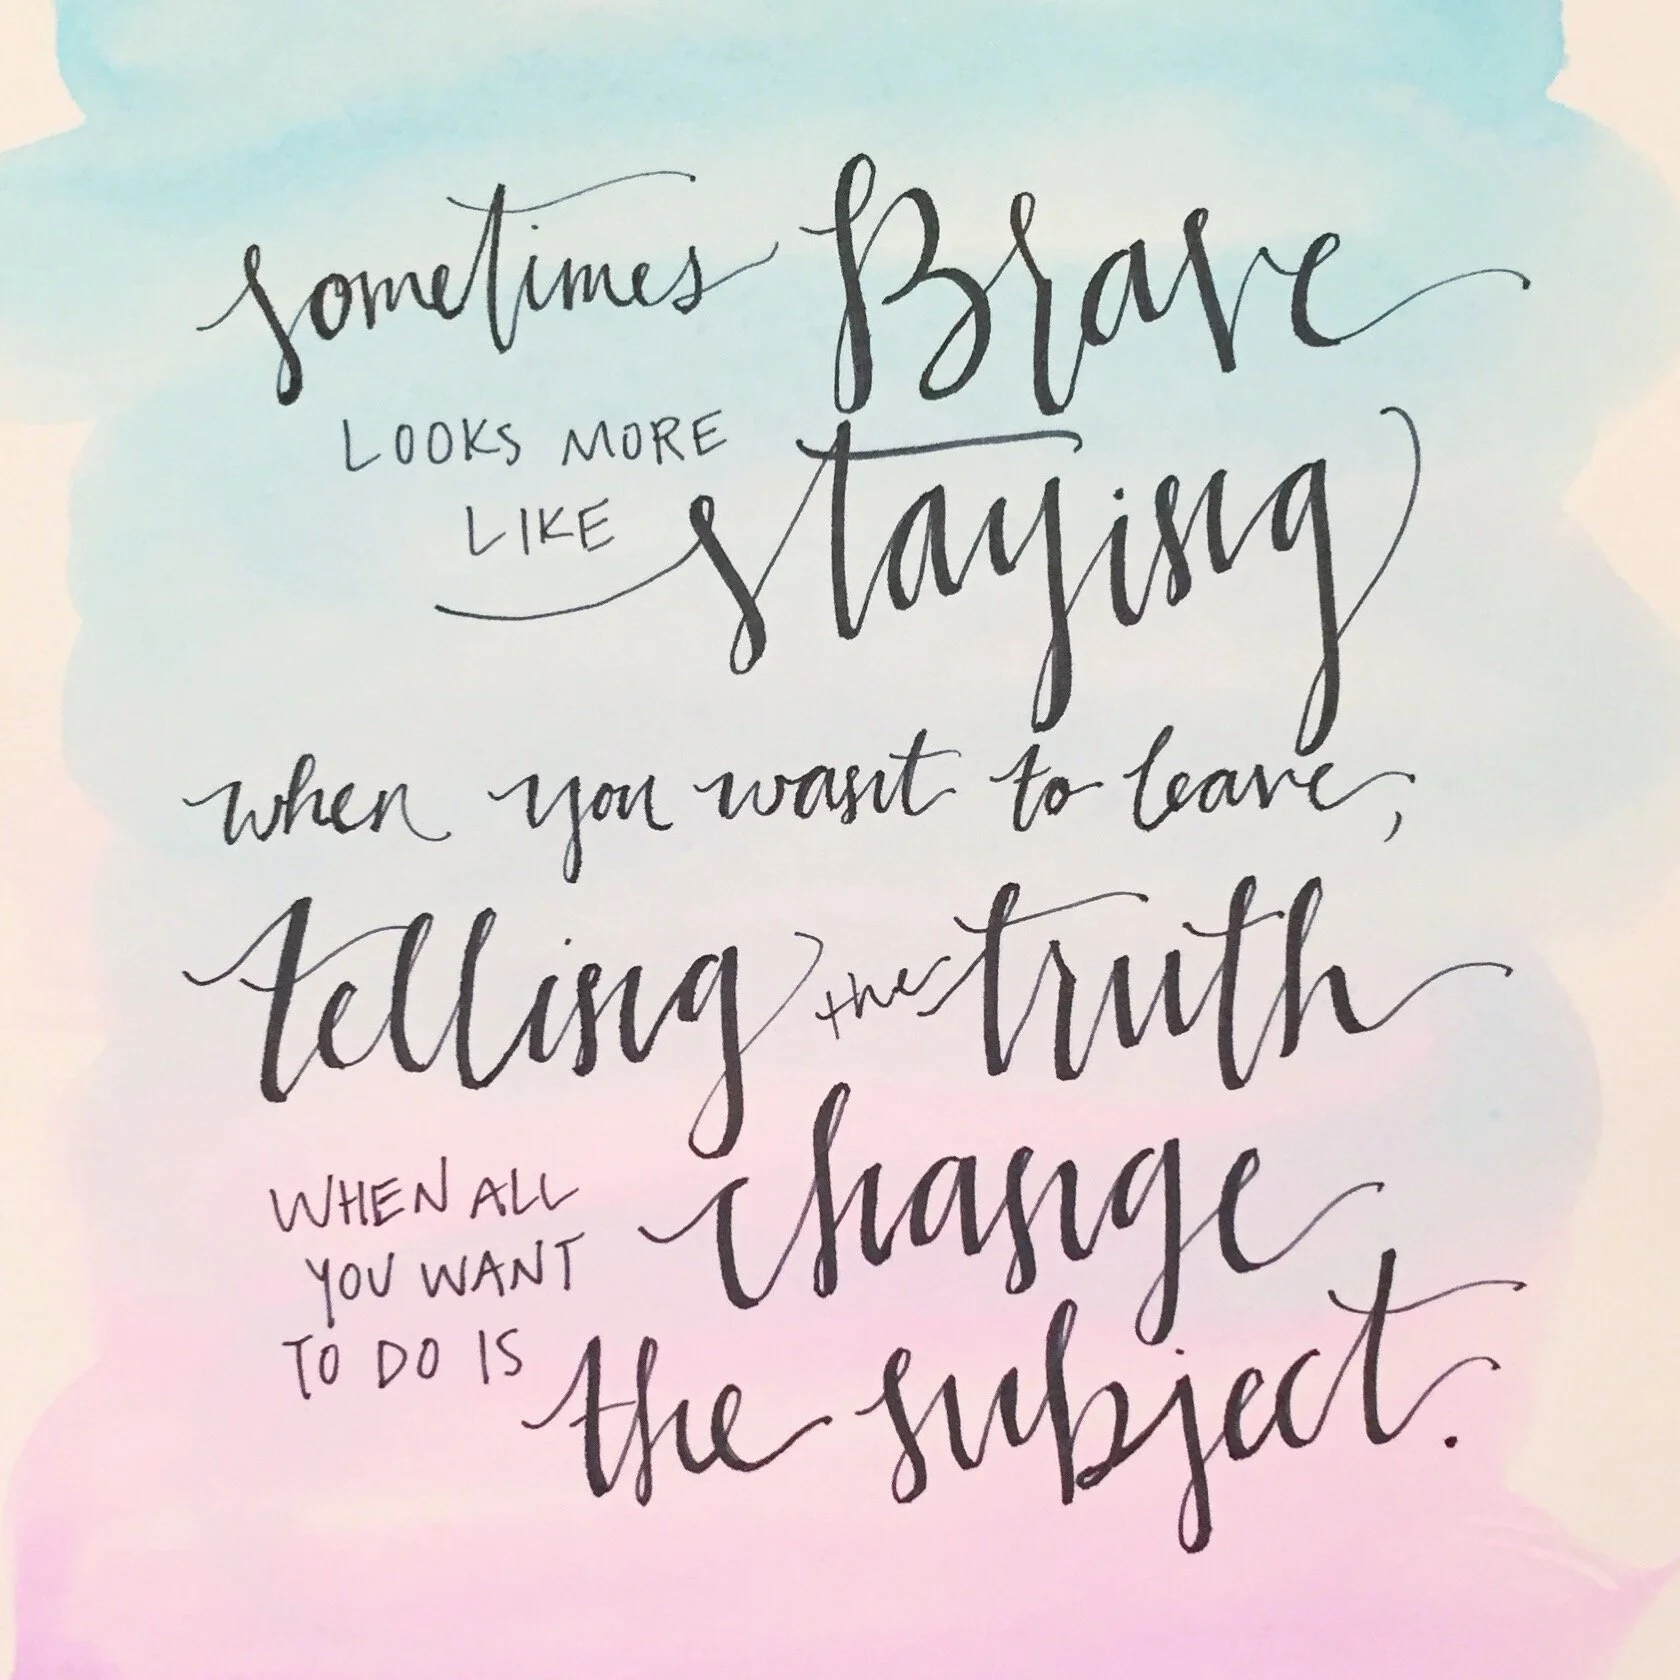 sometimes Brave
LOOKS MORE
LIKE staying
when you want to leave,
telling the truth
WHEN ALL
YOU WANT
TO DO IS
change
the subject.